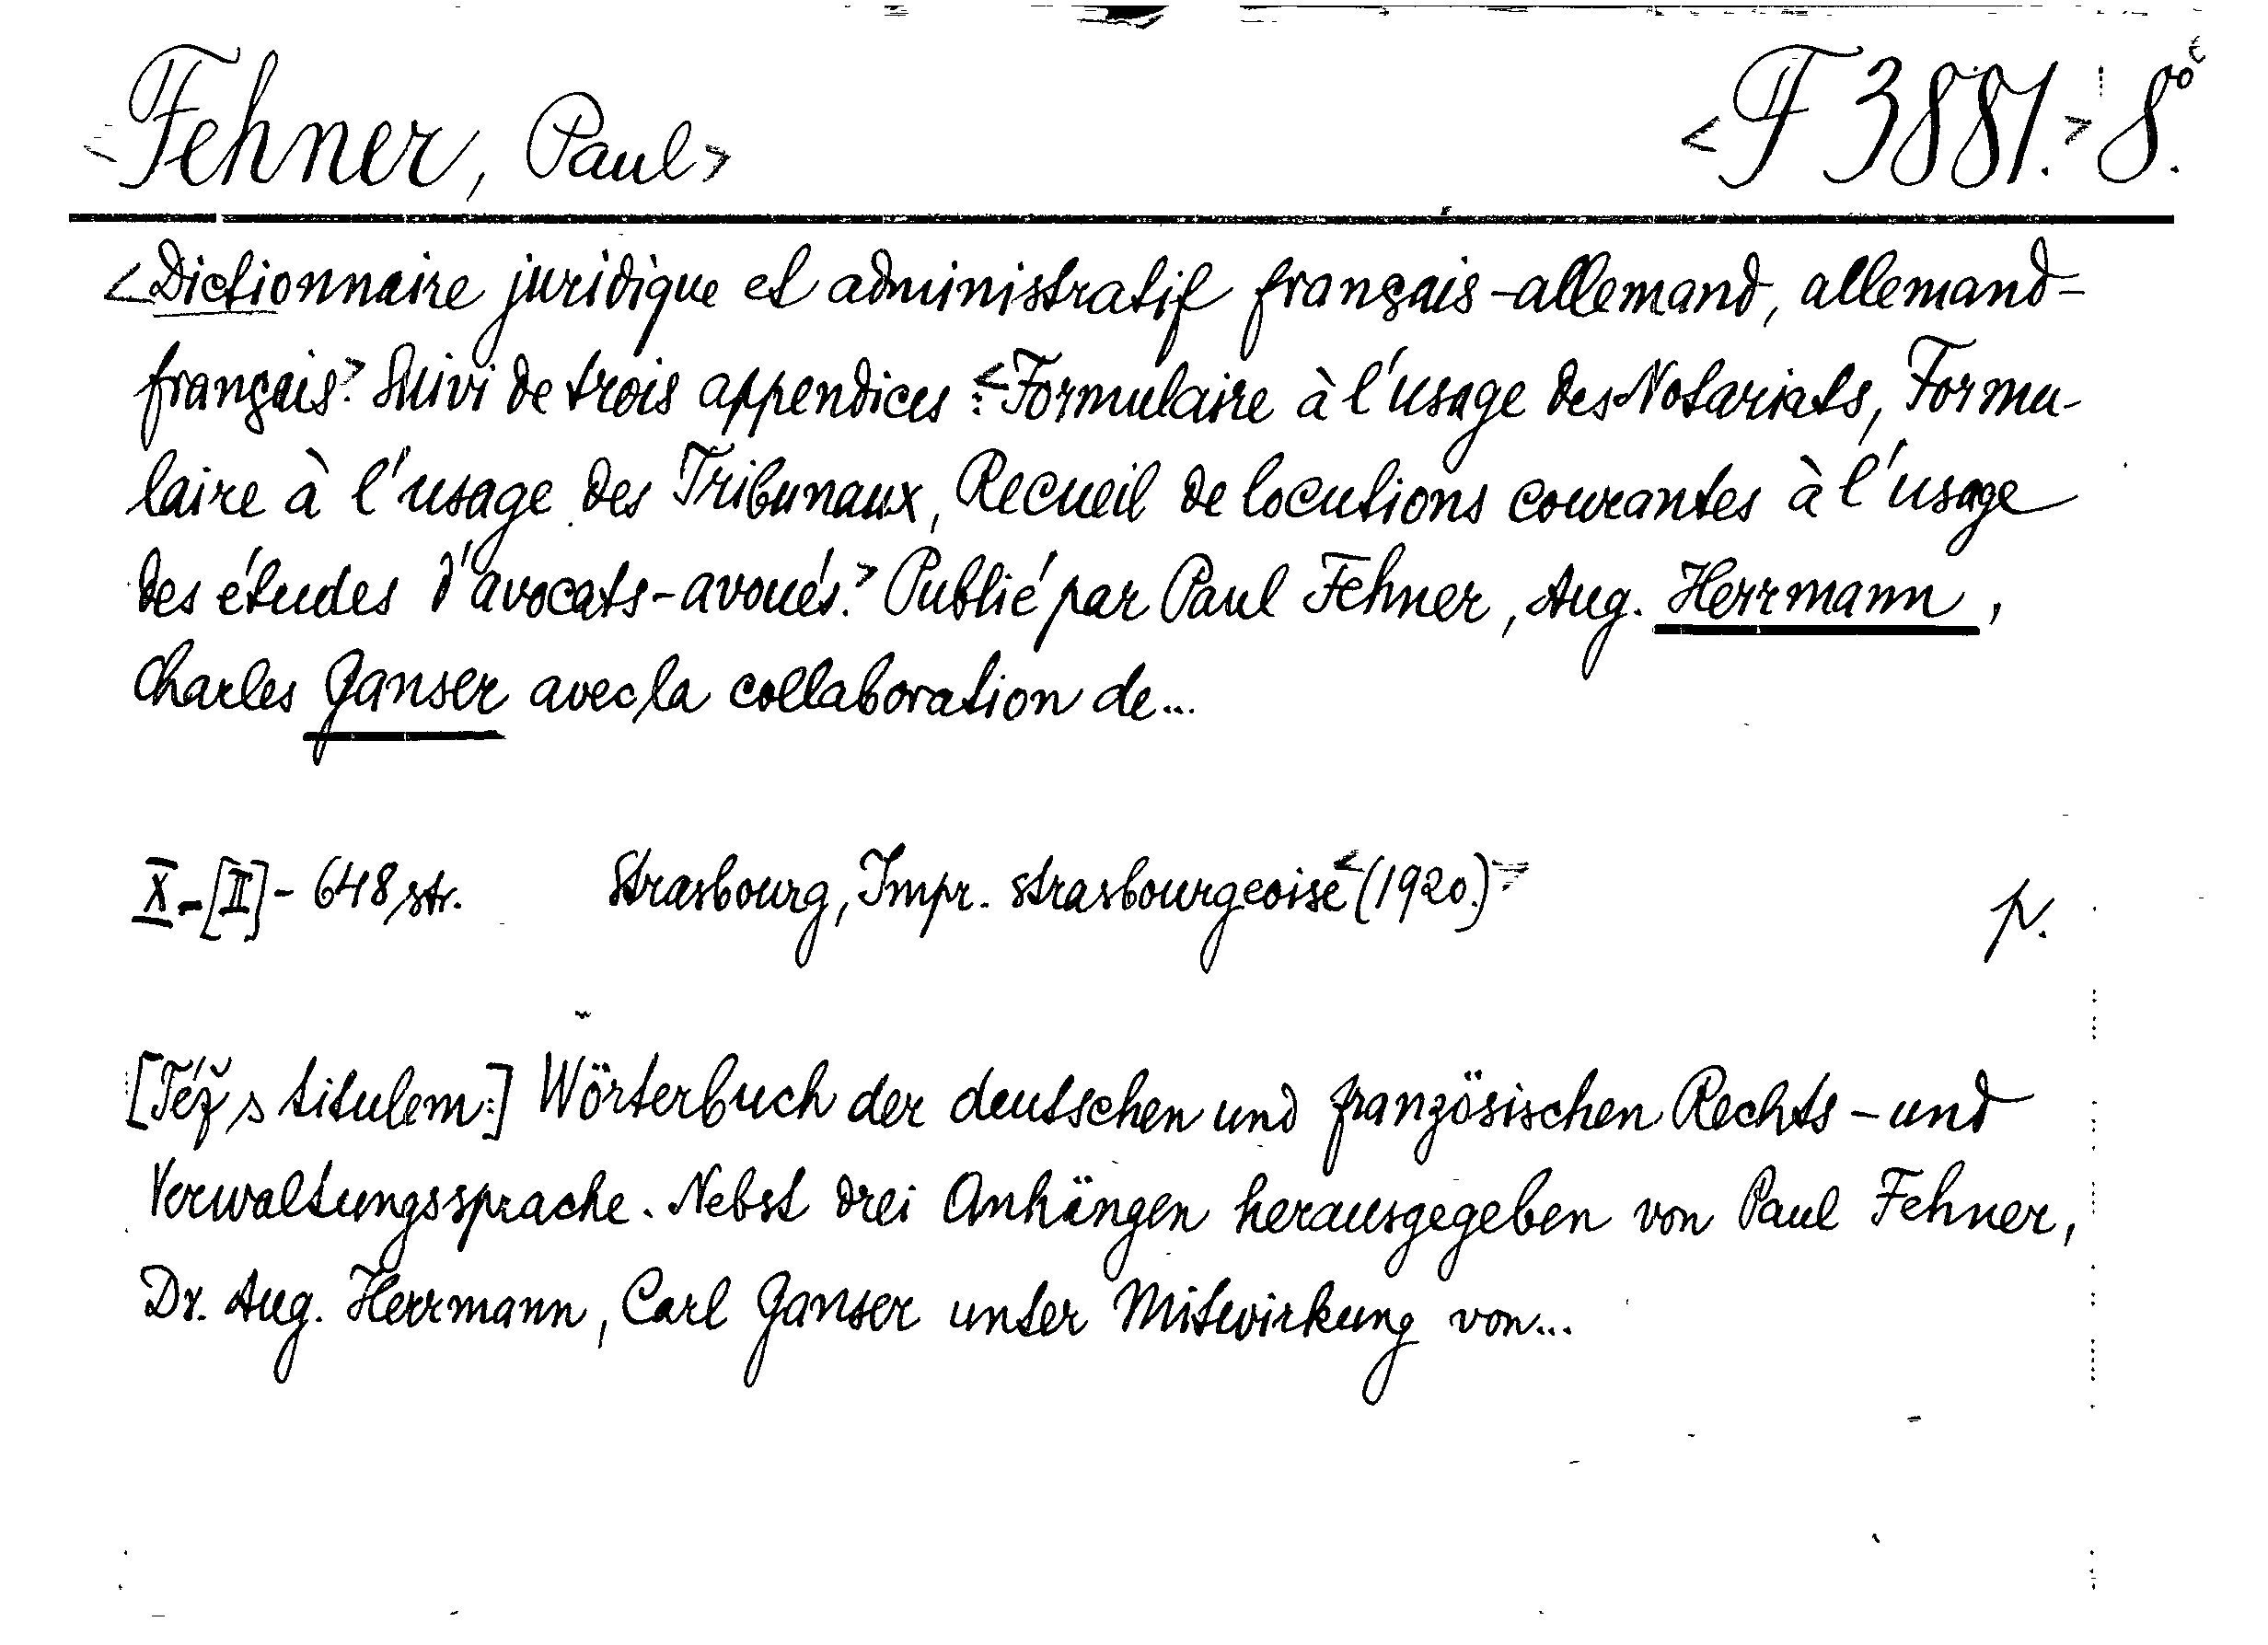 <Fehner, Paul> <F 3881.> 8°.
<Dictionnaire juridique et administratif français-allemand, allemand-
français.> Suivi de trois appendices: <Formulaire à l'usage des Notariats, Formu-
laire à l'usage des Tribunaux, Recueil de locutions courantes à l'usage
des études d'avocats-avoués.> Publié par Paul Fehner, Aug. Herrmann,
Charles Ganser avec la collaboration de...
X-[II]-648 str. Strasbourg, Impr. strasbourgeoise <(1920.)>
p.
[Též s titulem:] Wörterbuch der deutschen und französischen Rechts- und
Verwaltungssprache. Nebst drei Anhängen herausgegeben von Paul Fehner,
Dr. Aug. Herrmann, Carl Ganser unter Mitwirkung von...